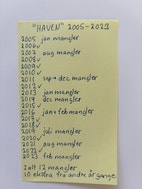 "HAVEN" 2005-2023
2005 jan mangler
2006 ✓
2007 aug mangler
2008 ✓
2009 ✓
2010 ✓
2011 sep + dec mangler
2012 ✓
2013 jan mangler
2014 dec mangler
2015 ✓
2016 jan + feb mangler
2017 ✓
2018 ✓
2019 juli mangler
2020 ✓
2021 aug mangler
2022 ✓
2023 feb mangler
I alt 12 mangler
10 ekstra fra andre årgange